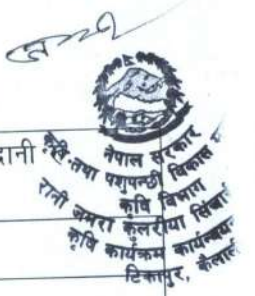 दानी
नेपाल सरकार
कृषि तथा पशुपन्छी विकास
कृषि विभाग
रानी जमरा कुलरिया सिंचाई
कृषि कार्यक्रम कार्यन्वयन
टिकापुर, कैलाली